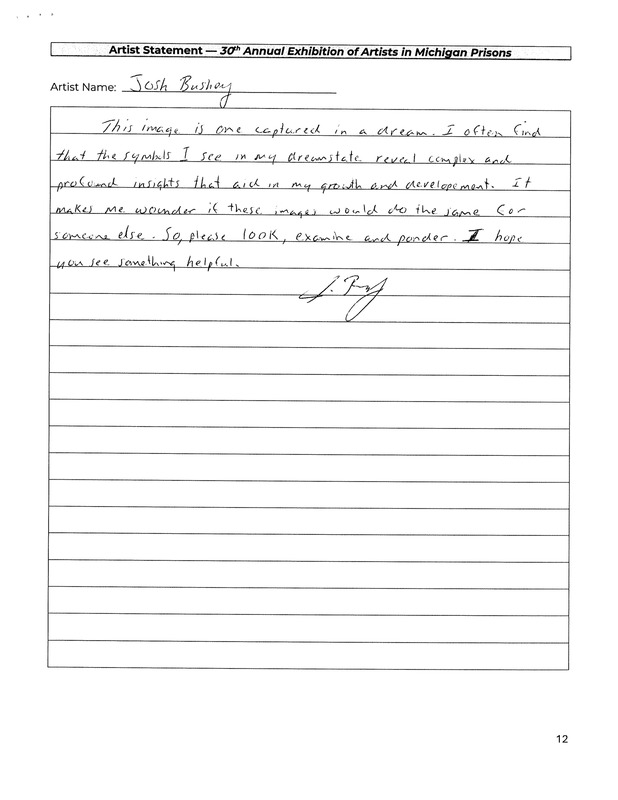 Artist Statement — 30th Annual Exhibition of Artists in Michigan Prisons
Artist Name: Josh Bushey
This image is one captured in a dream. I often find
that the symbols I see in my dreamstate reveal complex and
profound insights that aid in my growth and developement. It
makes me wounder if these images would do the same for
someone else. So, please look, examine and ponder. I hope
you see something helpful.
12